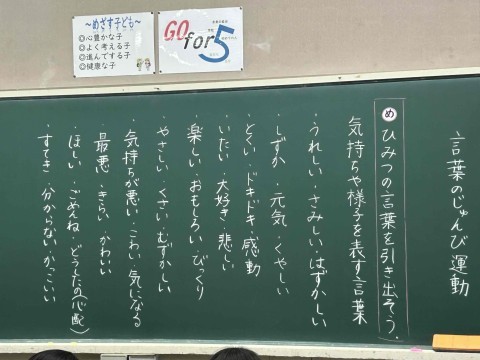 ～めざす子ども～
◎心豊かな子
◎よく考える子
◎進んでする子
◎健康な子
GO for 5
言葉のじゅんび運動
め ひみつの言葉を引き出そう。
気持ちや様子を表す言葉
・うれしい・さみしい・はずかしい
・しずか・元気・くやしい
・とくい・ドキドキ・感動
・いたい・大好き・悲しい
・楽しい・おもしろい・びっくり
・やさしい・くさい・むずかしい
・気持ちが悪い・こわい・気になる
・最悪・きらい・かわいい
・ほしい・ごめんね・どうしたの(心配)
・すてき・分からない・かっこいい